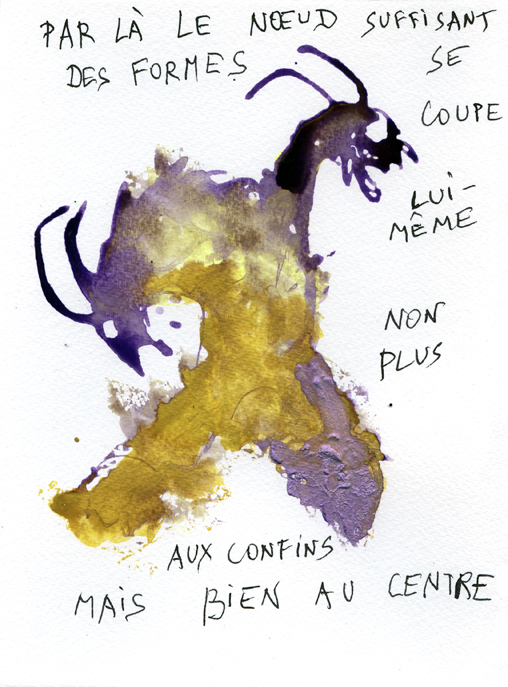 PAR LÀ LE NŒUD SUFFISANT
DES FORMES SE
COUPE
LUI-
MÊME
NON
PLUS
AUX CONFINS
MAIS BIEN AU CENTRE